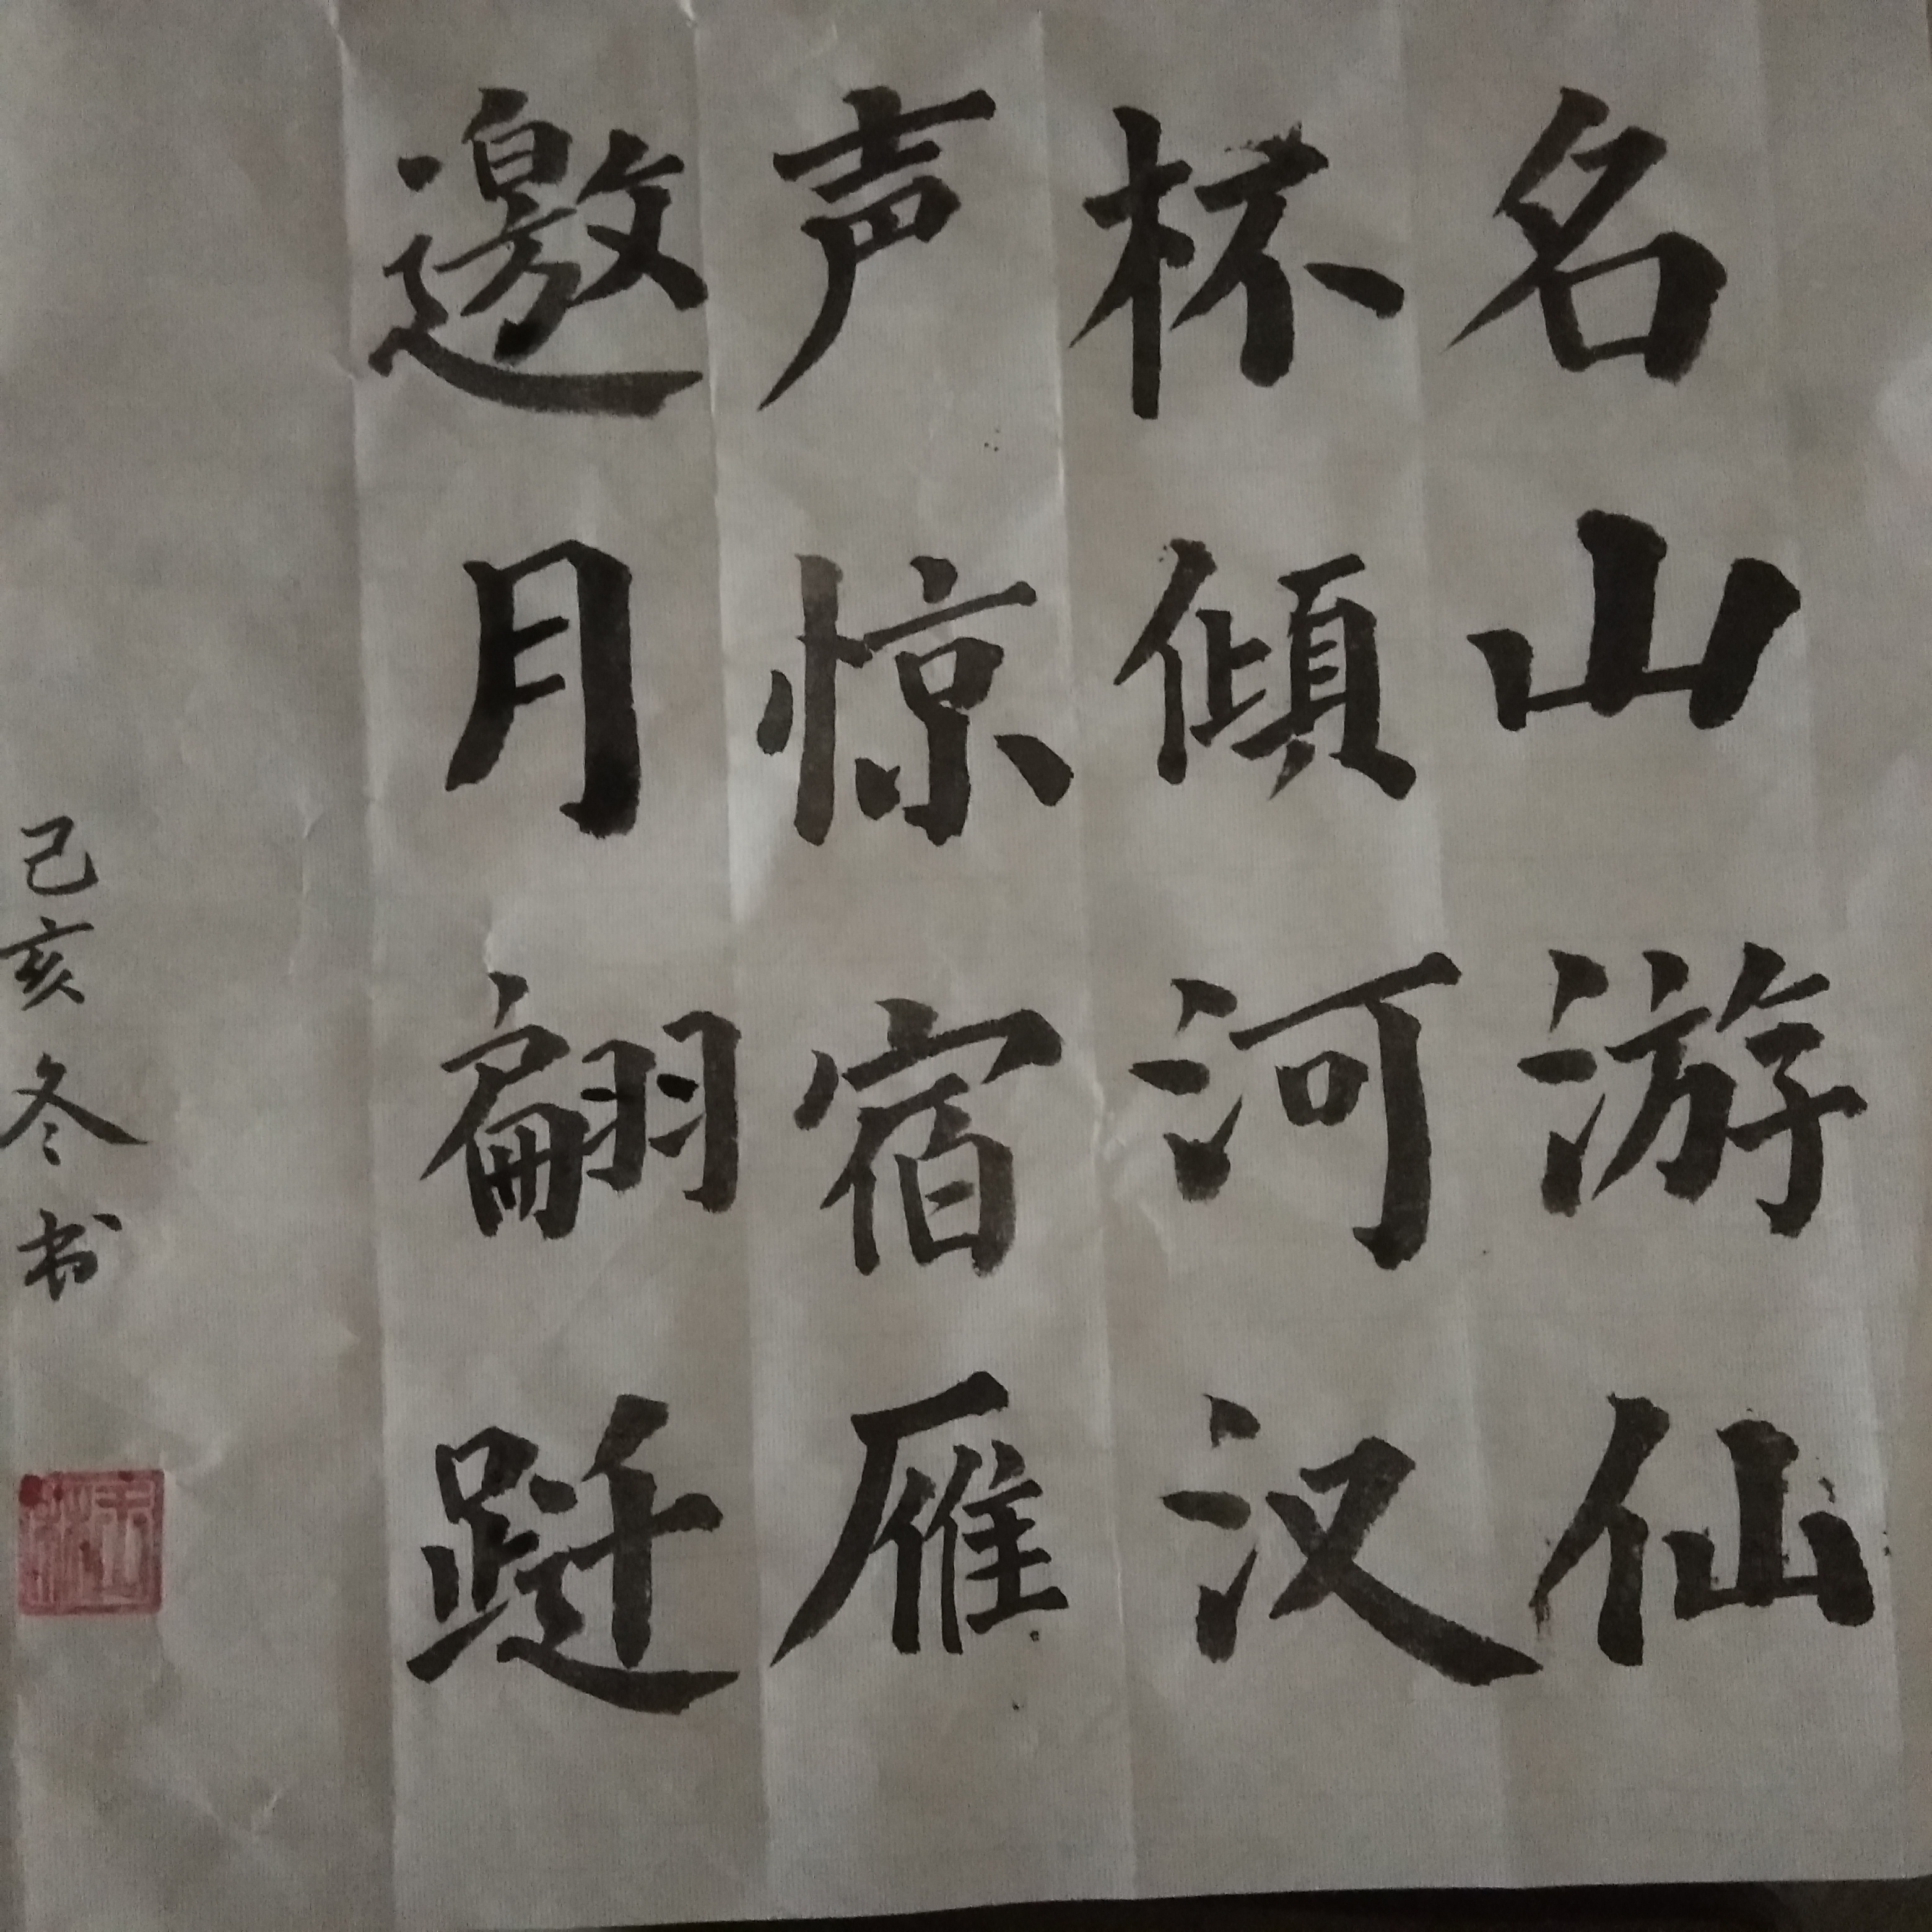 名山游仙
杯倾河汉
声惊宿雁
邀月翩跹
己亥冬书